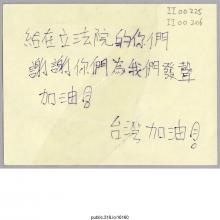 II 00225
II 00206
給在立法院的你們
謝謝你們為我們發聲
加油!
台灣加油!
public.318.io/16160